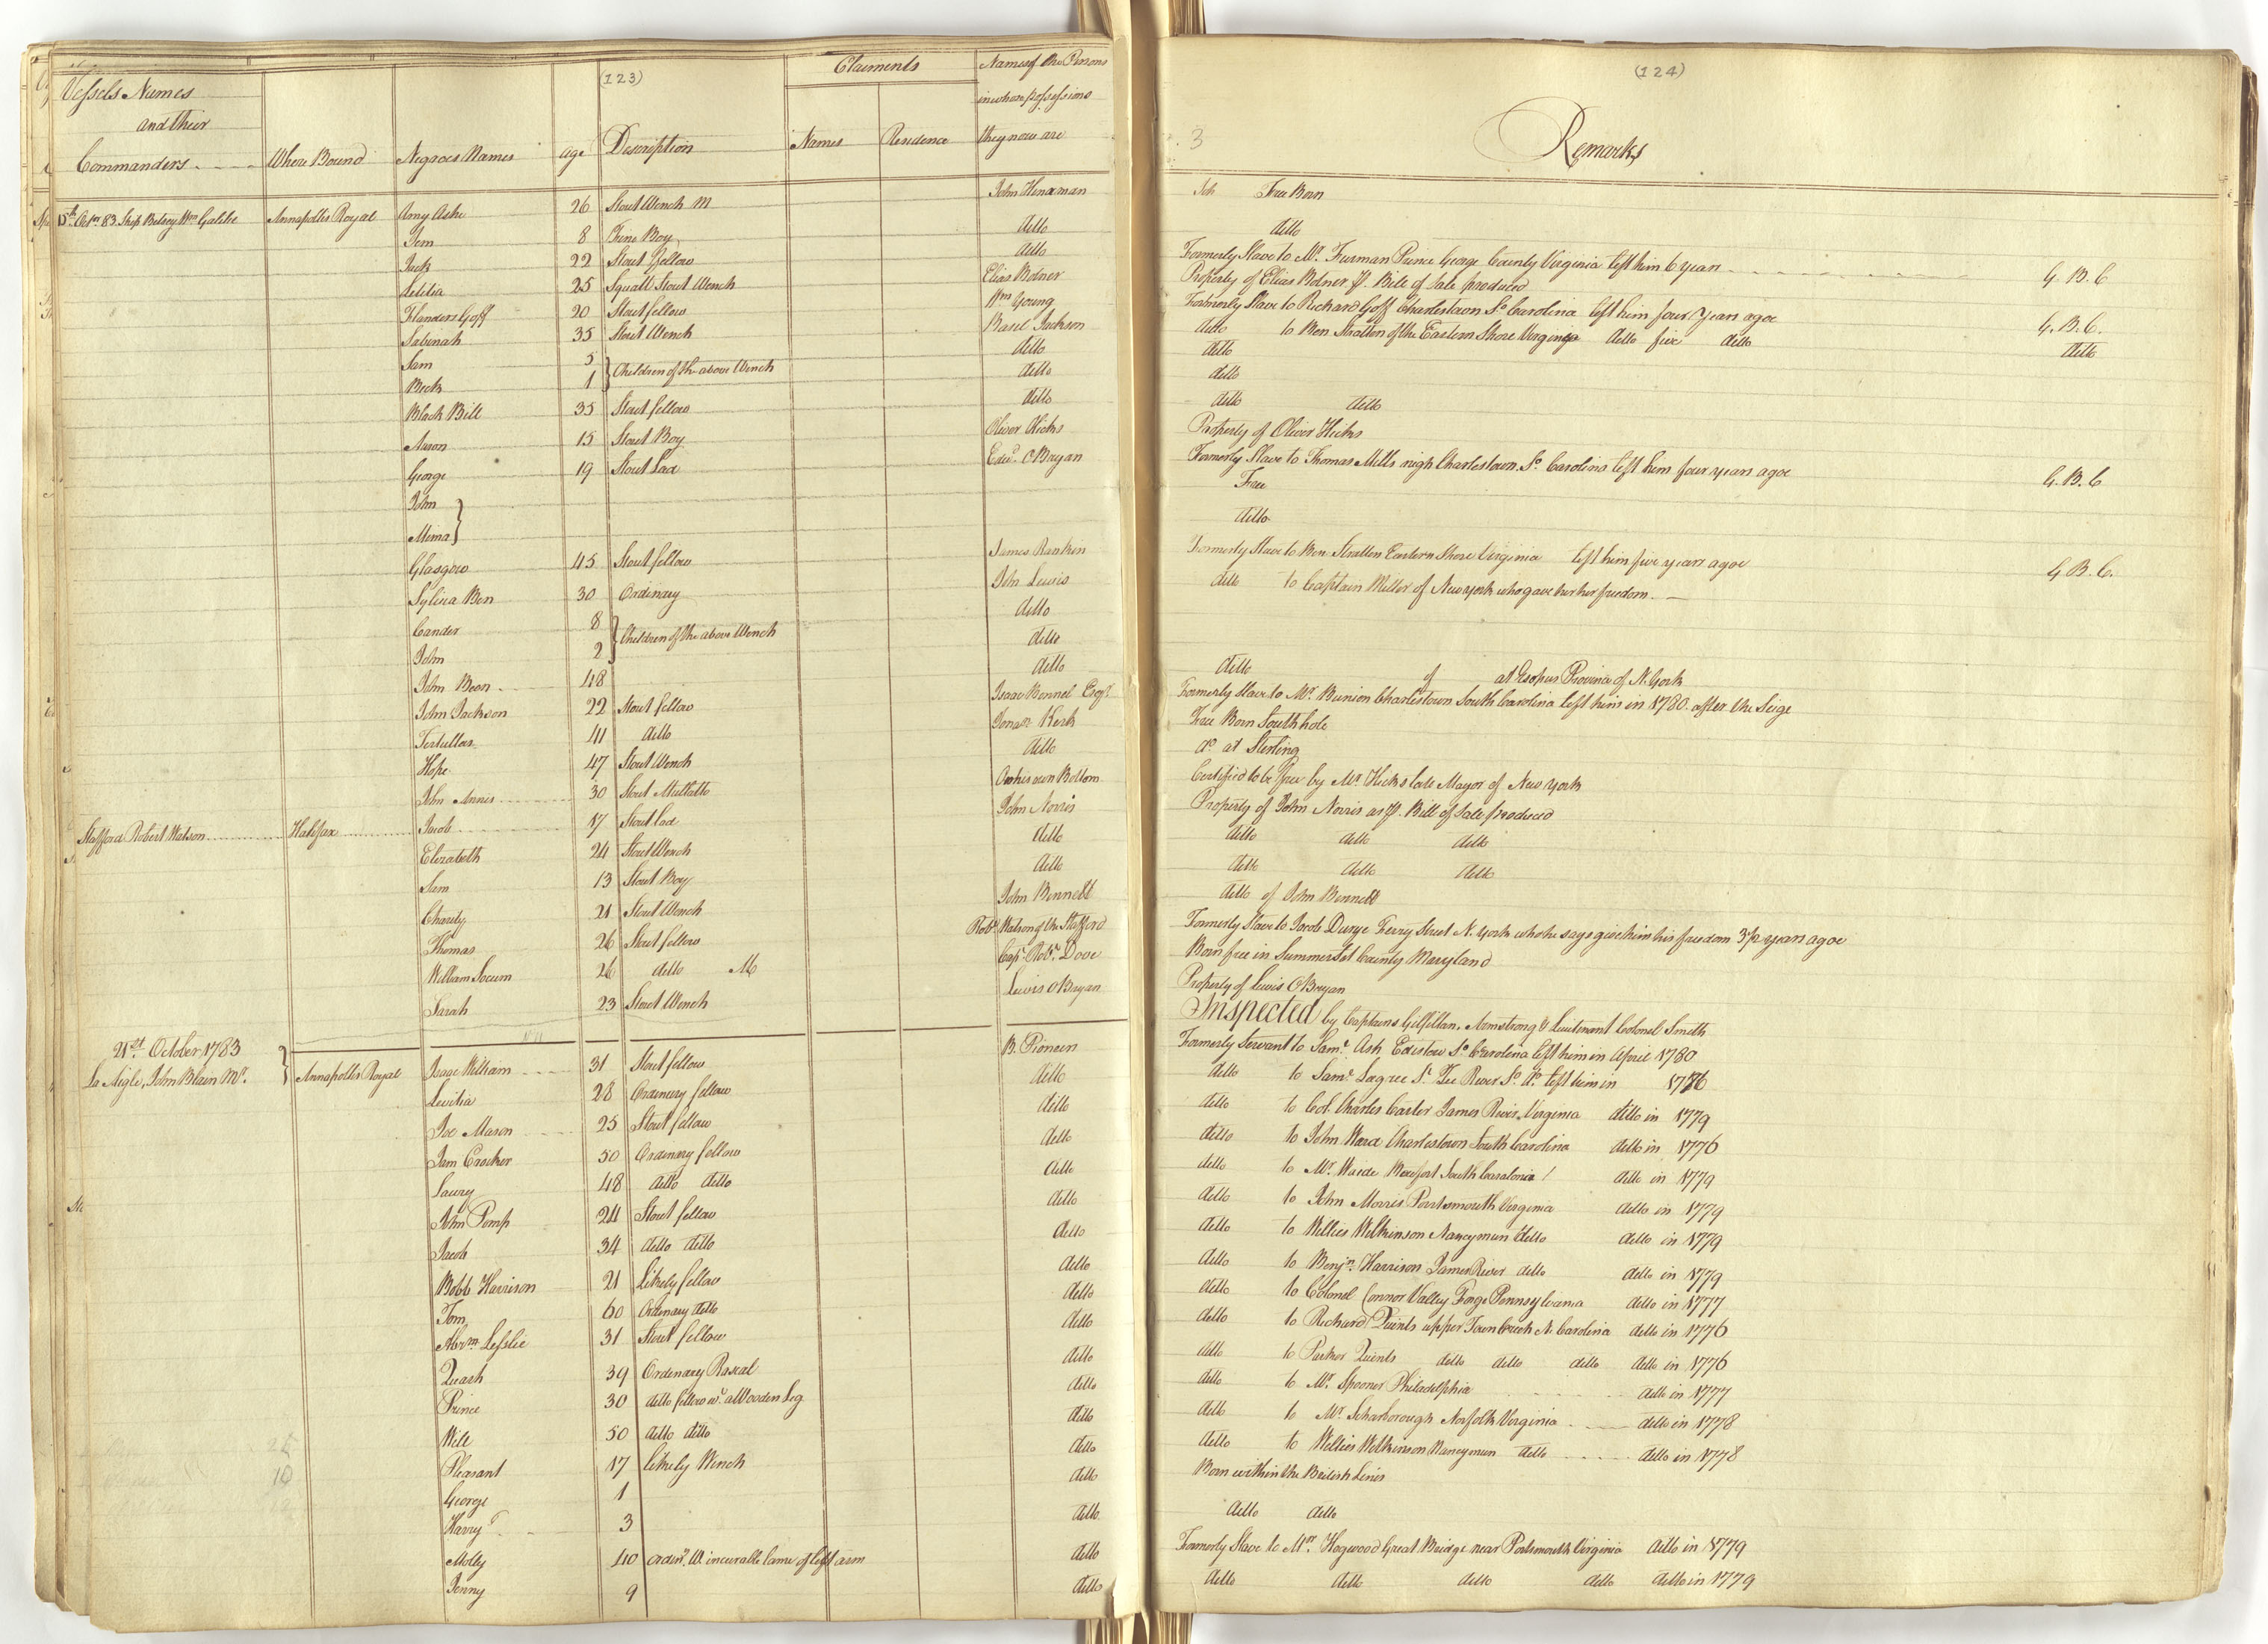 (123)
Vessels Names
and their
Commanders
Where Bound
Negroes Names
Age
Description
Claiments
Names
Residence
Names of the Persons
in whose possessions
they now are
15th Octr. 83 Ship Betsey Wm Gallibe Annapollis Royal Amy Ashe 26 Stout Wench M John Hinaxman
Tom 8 Fine Boy ditto
Jack 22 Stout fellow ditto
Letitia 25 Squatt Stout Wench Elias Botner
Flanders Goff 20 Stout fellow Wm Young
Sabinah 35 Stout Wench Basel Jackson
Sam 5 } Children of the above Wench ditto
Beck 1 ditto
Black Bill 35 Stout fellow ditto
Aaron 15 Stout Boy Oliver Hicks
George 19 Stout Lad Edwd. OBryan
John }
Mima
Glasgow 45 Stout fellow James Rankin
Sylvia Bon 30 Ordinary John Lewis
Cander 8 } Children of the above Wench ditto
John 2 ditto
John Boon 48 ditto
John Jackson 22 Stout fellow Isaac Bonnel Esqr
Tertullas 41 ditto Jonan Kirk
Hope 47 Stout Wench ditto
John Annis 30 Stout Mullatto On his own Bottom
Stafford Robert Watson Halifax Jacob 17 Stout lad John Norris
Elizabeth 24 Stout Wench ditto
Sam 13 Stout Boy ditto
Charity 21 Stout Wench John Bennett
Thomas 26 Stout fellow Robt. Watson of the Stafford
William Socum 26 ditto M Capt. Robt. Dove
Sarah 23 Stout Wench Lewis OBryan
21st October 1783
La Aigle, John Blain Mr. } Annapollis Royal Isaac William 31 Stout fellow B. Pioneers
Levitia 28 Ordinary fellow ditto
Joe Mason 25 Stout fellow ditto
Sam Crocker 50 Ordinary fellow ditto
Saury 48 ditto ditto ditto
John Pomp 24 Stout fellow ditto
Jacob 34 ditto ditto ditto
Bobb Harrison 21 Likely fellow ditto
Tom 60 Ordinary ditto ditto
Abrm Leslie 31 Stout fellow ditto
Quash 39 Ordinary Rascal ditto
Prince 30 ditto fellow wt. a Wooden Leg ditto
Will 50 ditto ditto ditto
Pleasant 17 likely Wench ditto
George 1 ditto
Harry 3 ditto
Molly 40 ordiny. W. incurable lame of left arm ditto
Jenny 9 ditto
(124)
Remarks
Joh Free Born
ditto
Formerly Slave to Mr. Furman Prince George County Virginia left him 6 year G. B. C
Property of Elias Botner pr. Bill of Sale produced
Formerly Slave to Richard Goff Charlestown So Carolina left him four Years agoe G. B. C.
ditto to Ben Stratten of the Eastern Shore Virginya ditto five ditto ditto
ditto
ditto
ditto ditto
Property of Oliver Hicks
Formerly Slave to Thomas Mills nigh Charlestown So. Carolina left him four years agoe G. B. C
Free
ditto
Formerly Slave to Ben Stratten Eastern Shore Virginia left him five years agoe G B. C.
ditto to Captain Miller of New York who gave her her freedom
ditto of at Esopus Province of N. York
Formerly Slave to Mr. Bunion Charlestown South Carolina left him in 1780 after the Seige
Free Born Southhole
do at Sterling
Certified to be free by Mr Hicks late Mayor of New York
Property of John Norris as pr. Bill of Sale produced
ditto ditto ditto
ditto ditto ditto
ditto of John Bennett
Formerly Slave to Jacob Durye Ferry Street N. York who he says give him his freedom 3½ years agoe
Born free in Summerset County Maryland
Property of Lewis OBryan
Inspected by Captains Gilfillan, Armstrong & Lieutenant Colonel Smith
Formerly Servant to Saml. Ash Edistow So Carolina left him in April 1780
ditto to Saml Legree Sr. Tee River So. do. left him in 1776
ditto to Col. Charles Carter James River Virginia ditto in 1779
ditto to John Ward Charlestown South Carolina ditto in 1776
ditto to Mr. Waide Beaufort South Caralonia ditto in 1779
ditto to John Morris Portsmouth Virginia ditto in 1779
ditto to Willies Wilkinson Nancymun ditto ditto in 1779
ditto to Benjn. Harrison James River ditto ditto in 1779
ditto to Colonel Connor Valley Forge Pennsylvania ditto in 1777
ditto to Richard Quints upper Town Creek N. Carolina ditto in 1776
ditto to Parker Quints ditto ditto ditto ditto in 1776
ditto to Mr. Spooner Philadelphia ditto in 1777
ditto to Mr. Scharborough Norfolk Virginia ditto in 1778
ditto to Willies Wilkinson Nancymun ditto ditto in 1778
Born within the British Lines
ditto ditto
Formerly Slave to Mr. Hogwood Great Bridge near Portsmouth Virginia ditto in 1779
ditto ditto ditto ditto ditto in 1779